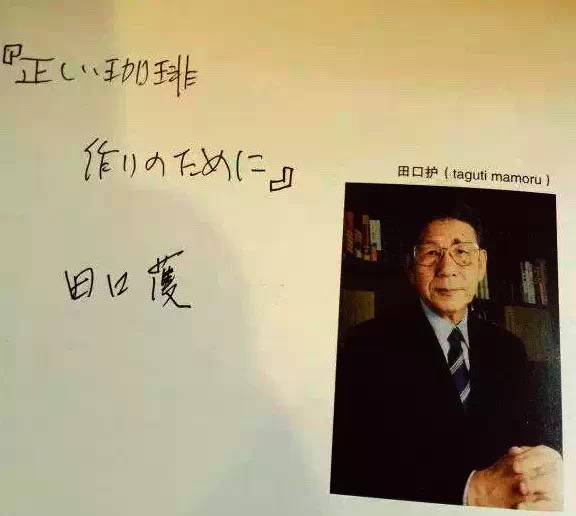 『正しい珈琲
作りのために』
田口護
田口护 ( taguti mamoru )